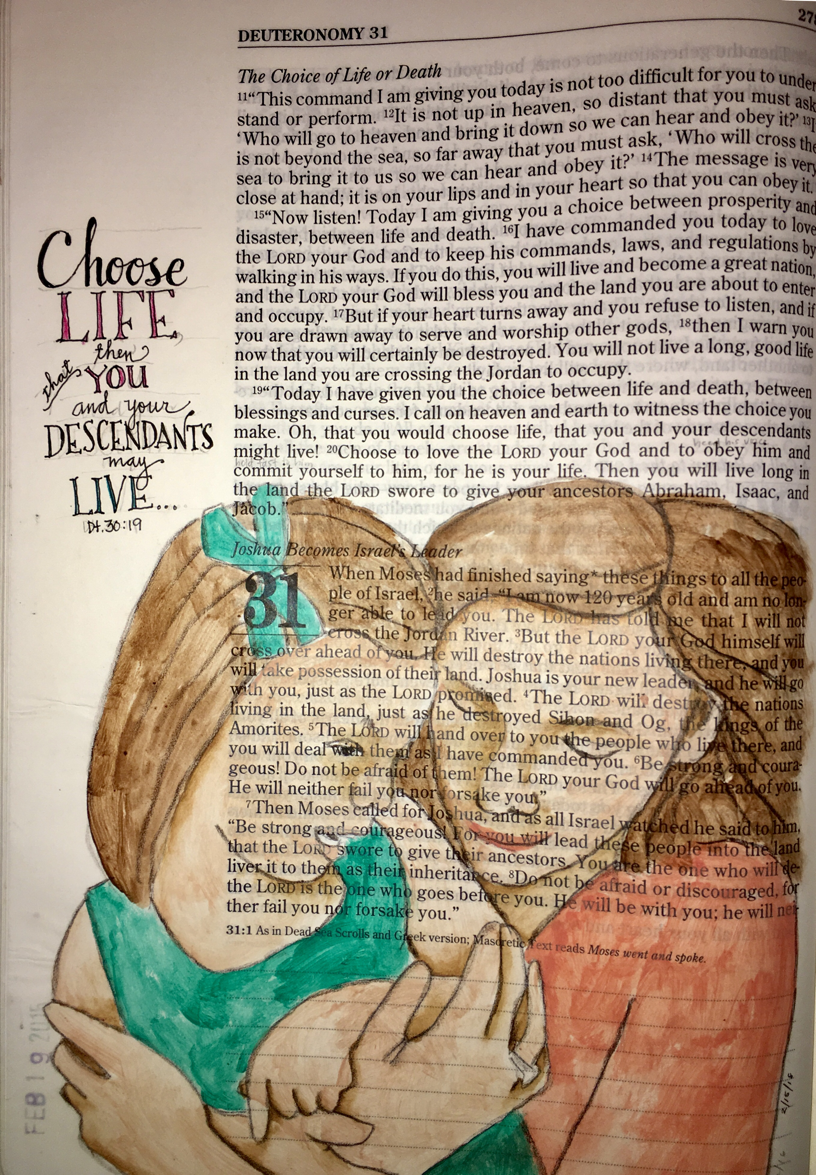 DEUTERONOMY 31
The Choice of Life or Death
11“This command I am giving you today is not too difficult for you to under
stand or perform. 12It is not up in heaven, so distant that you must ask
‘Who will go to heaven and bring it down so we can hear and obey it?’ 13I
is not beyond the sea, so far away that you must ask, ‘Who will cross the
sea to bring it to us so we can hear and obey it?’ 14The message is very
close at hand; it is on your lips and in your heart so that you can obey it.
15“Now listen! Today I am giving you a choice between prosperity and
disaster, between life and death. 16I have commanded you today to love
the LORD your God and to keep his commands, laws, and regulations by
walking in his ways. If you do this, you will live and become a great nation,
and the LORD your God will bless you and the land you are about to enter
and occupy. 17But if your heart turns away and you refuse to listen, and if
you are drawn away to serve and worship other gods, 18then I warn you
now that you will certainly be destroyed. You will not live a long, good life
in the land you are crossing the Jordan to occupy.
19“Today I have given you the choice between life and death, between
blessings and curses. I call on heaven and earth to witness the choice you
make. Oh, that you would choose life, that you and your descendants
might live! 20Choose to love the LORD your God and to obey him and
commit yourself to him, for he is your life. Then you will live long in
the land the LORD swore to give your ancestors Abraham, Isaac, and
Jacob.”
Choose
LIFE
then
that
YOU
and your
DESCENDANTS
may
LIVE...
Dt. 30:19
Joshua Becomes Israel’s Leader
31
When Moses had finished saying* these things to all the peo-
ple of Israel, 2he said, “I am now 120 years old and am no lon-
ger able to lead you. The LORD has told me that I will not
cross the Jordan River. 3But the LORD your God himself will
cross over ahead of you. He will destroy the nations living there, and you
will take possession of their land. Joshua is your new leader, and he will go
with you, just as the LORD promised. 4The LORD will destroy the nations
living in the land, just as he destroyed Sihon and Og, the kings of the
Amorites. 5The LORD will hand over to you the people who live there, and
you will deal with them as I have commanded you. 6Be strong and coura-
geous! Do not be afraid of them! The LORD your God will go ahead of you.
He will neither fail you nor forsake you.”
7Then Moses called for Joshua, and as all Israel watched he said to him,
“Be strong and courageous! For you will lead these people into the land
that the LORD swore to give their ancestors. You are the one who will de-
liver it to them as their inheritance. 8Do not be afraid or discouraged, for
the LORD is the one who goes before you. He will be with you; he will nei
ther fail you nor forsake you.”
31:1 As in Dead Sea Scrolls and Greek version; Masoretic Text reads Moses went and spoke.
FEB 19
2/15/16